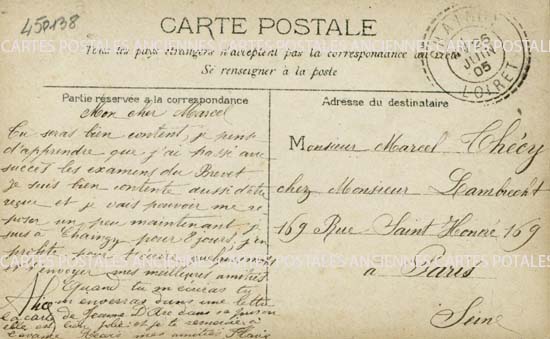 450138
CARTE POSTALE
Tous les pays étrangers n'acceptent pas la correspondance au recto
Se renseigner à la poste
JUIN
05
LOIRET
CARTES POSTALES ANCIENNES
Partie réservée à la correspondance
Adresse du destinataire
Mon cher Marcel
Tu seras bien content, je pense
d'apprendre que j'ai passé avec
succès les examens du Brevet
je suis bien contente aussi d'être
reçue et je vais pouvoir me re
poser un peu maintenant, je
suis à Chaingy pour 8 jours, j'en
profite
envoyer mes meilleures amitiés
Quand tu m'écriras tu
m'enverras dans une lettre
la carte de Jeanne D'Arc dans sa prison
elle est bien jolie et je te remercie
mes amitiés
Alice
Monsieur Marcel Chécy
chez Monsieur Lambrecht
169 Rue Saint Honoré 169
à Paris
Seine